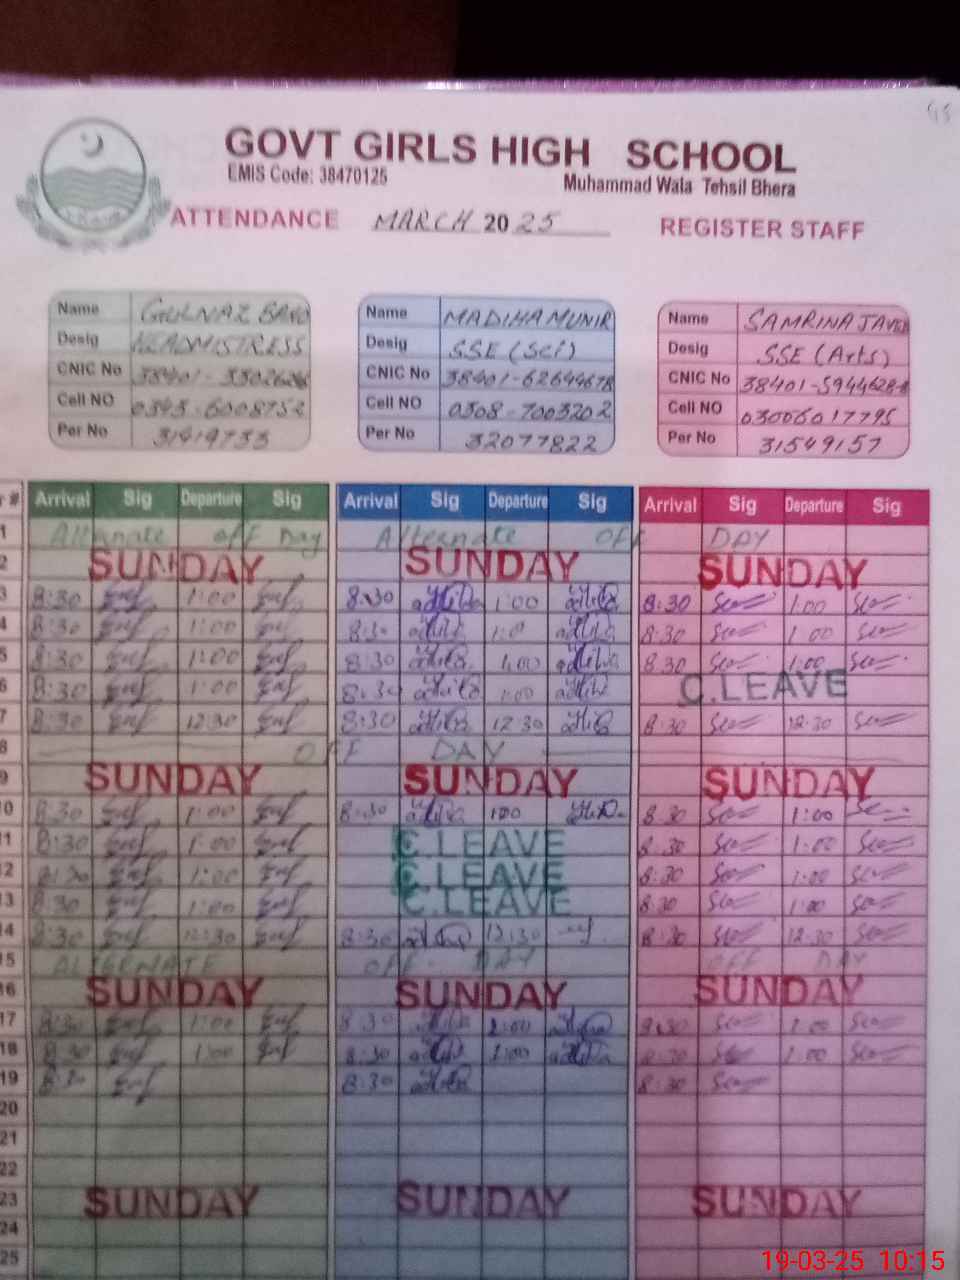 45
GOVT GIRLS HIGH SCHOOL
EMIS Code: 38470125
Muhammad Wala Tehsil Bhera
ATTENDANCE MARCH 2025 REGISTER STAFF
Name GULNAZ BANO Name MADIHA MUNIR Name SAMRINA JAVED
Desig HEADMISTRESS Desig SSE (Sci) Desig SSE (Arts)
CNIC No CNIC No CNIC No
Cell NO 0345-6008752 Cell NO 0308-7003202 Cell NO 03006017795
Per No 31419733 Per No 32077822 Per No 31549157
r # Arrival Sig Departure Sig Arrival Sig Departure Sig Arrival Sig Departure Sig
1 Alternate off Day Alternate OFF DAY
2 SUNDAY SUNDAY SUNDAY
3 8:30 1:00 8:30 1:00 8:30 1:00
4 8:30 1:00 8:30 1:0 8:30 1:00
5 8:30 1:00 8:30 1:00 8:30 1:00
6 8:30 1:00 8:30 1:00 C.LEAVE
7 8:30 12:30 8:30 12:30 8:30 12:30
8 OFF DAY
9 SUNDAY SUNDAY SUNDAY
10 8:30 1:00 8:30 1:00 8:30 1:00
11 8:30 1:00 C.LEAVE 8:30 1:00
12 8:30 1:00 C.LEAVE 8:30 1:00
13 8:30 1:00 C.LEAVE 8:30 1:00
14 8:30 12:30 8:30 12:30 8:30 12:30
15 ALTERNATE OFF DAY OFF DAY
16 SUNDAY SUNDAY SUNDAY
17 8:30 1:00 8:30 1:00 8:30 1:00
18 8:30 1:00 8:30 1:00 8:30 1:00
19 8:30 8:30 8:30
20
21
22
23 SUNDAY SUNDAY SUNDAY
24
25
19-03-25 10:15